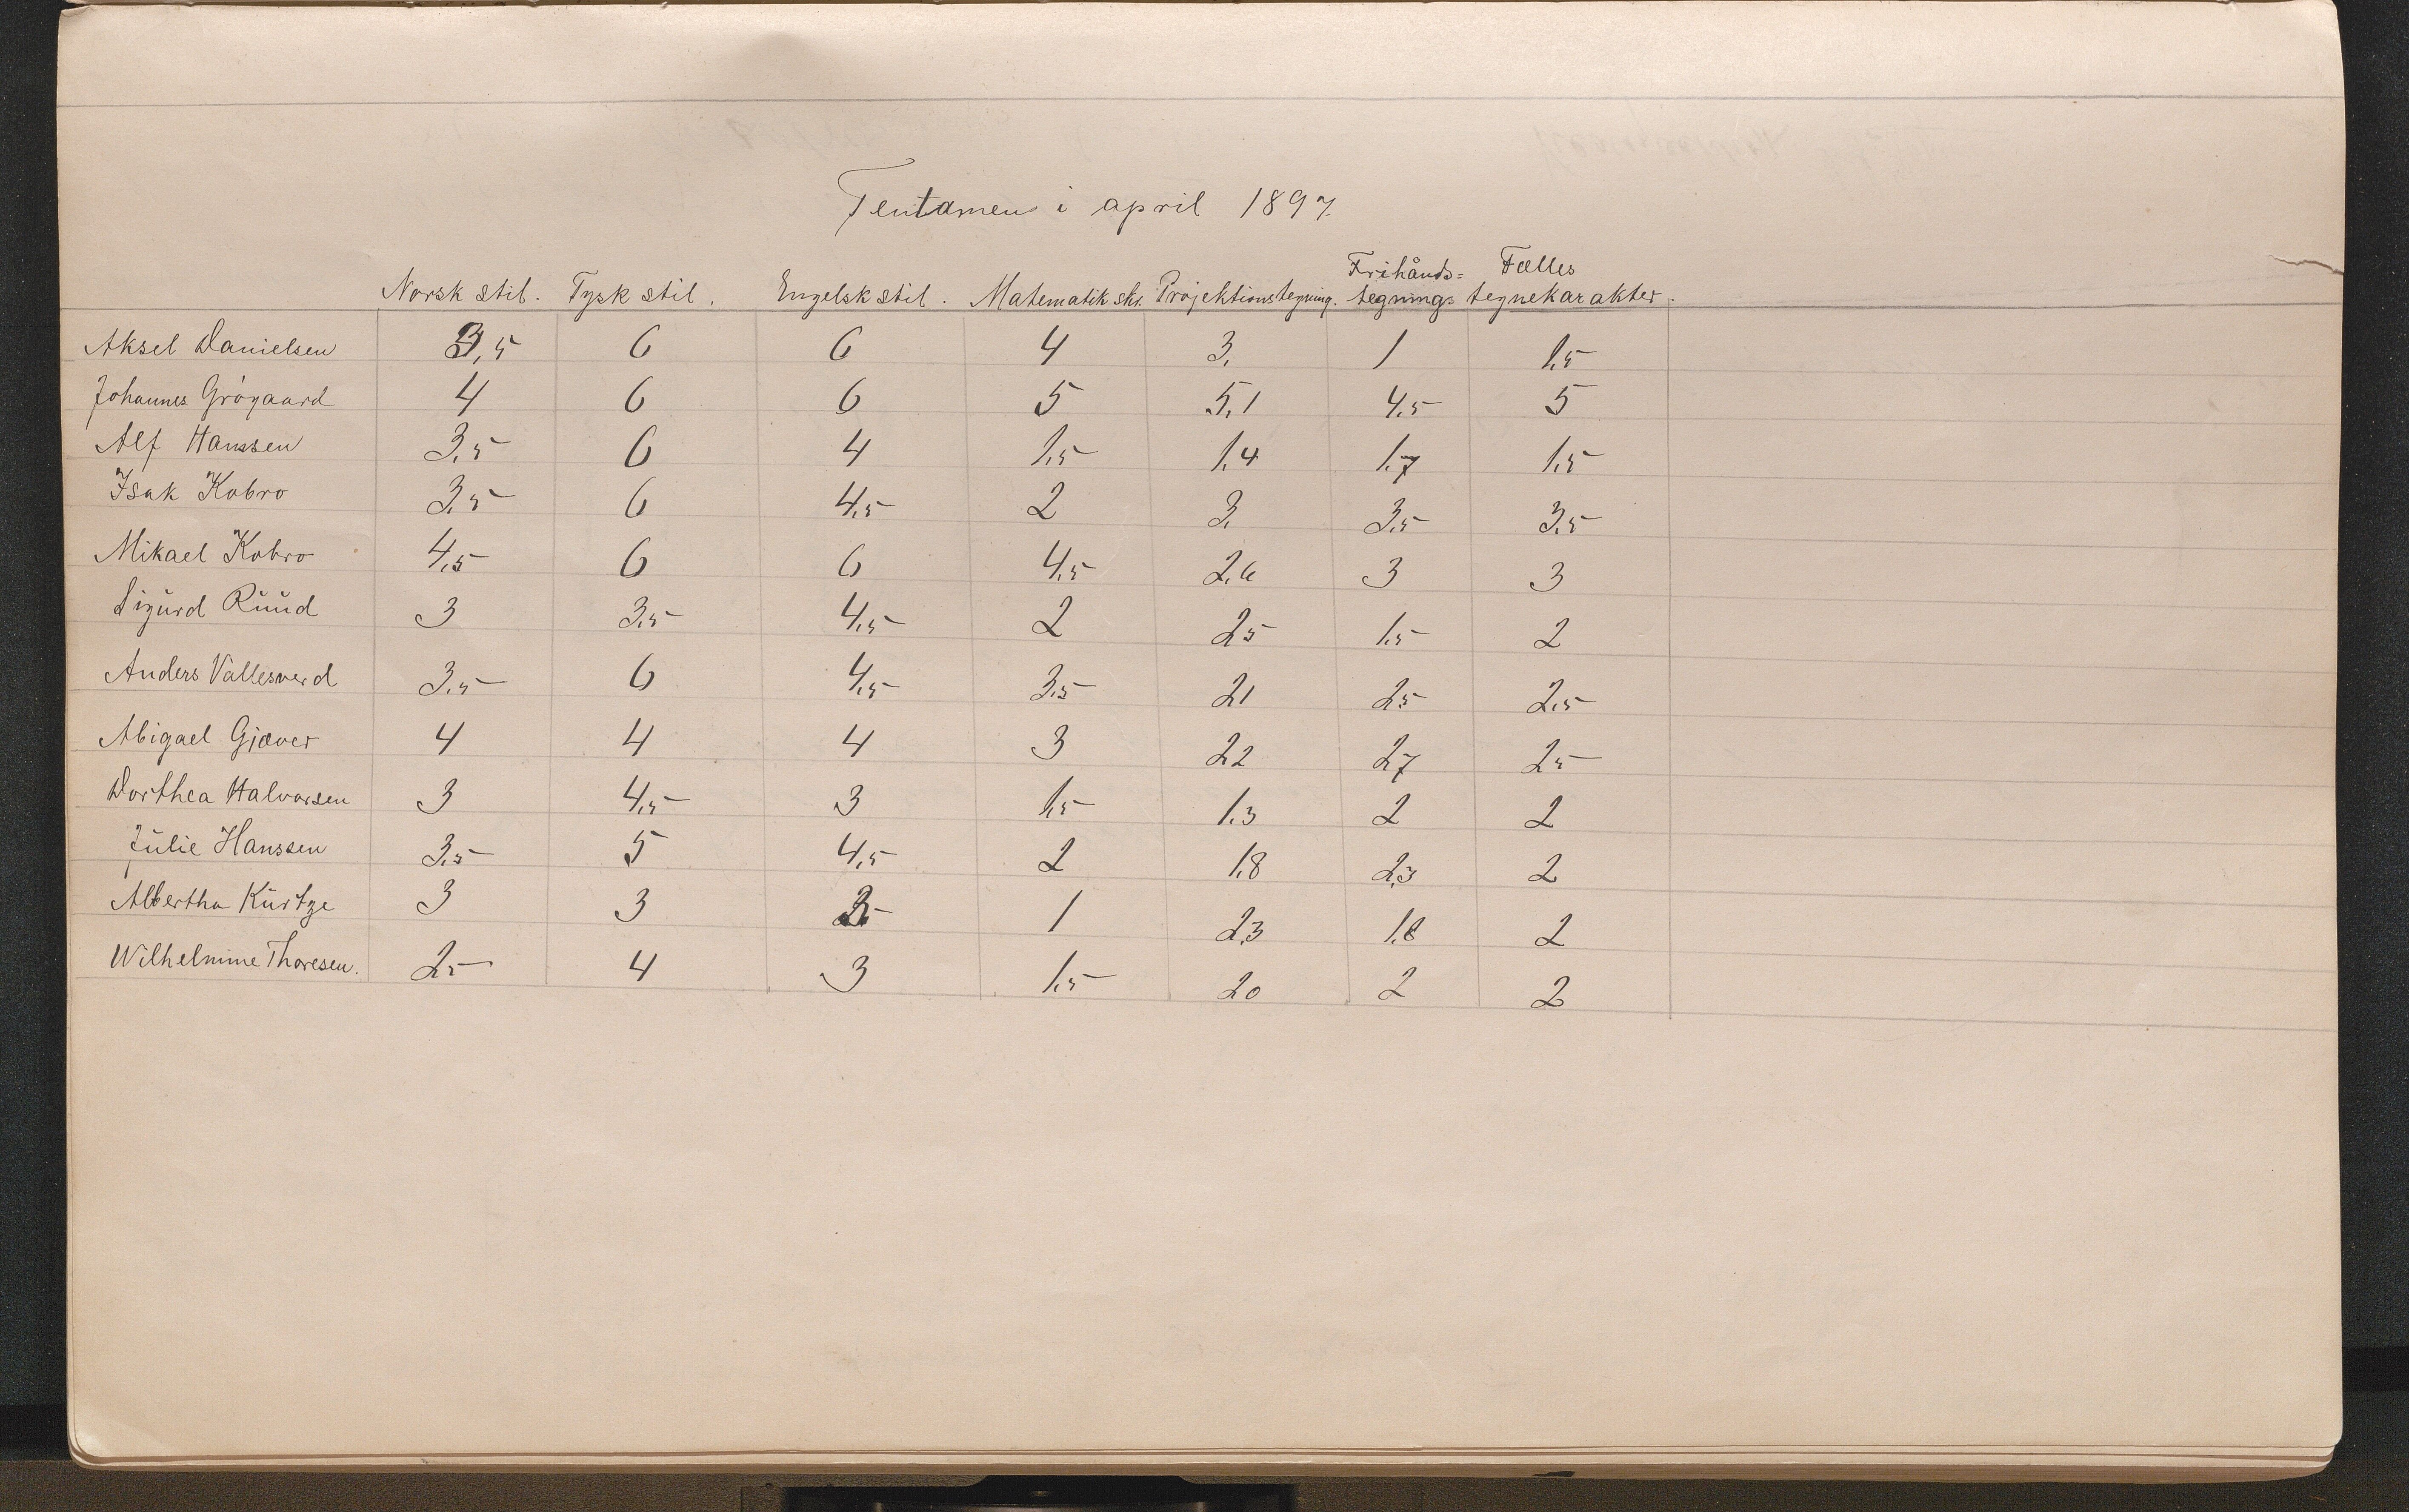 Tentamen i april 1897.
Frihånds= Fælles
Norsk stil. Tysk stil. Engelsk stil. Matematik skr. Projektionstegning. tegning= tegnekarakter.
Aksel Danielsen 3,5 6 6 4 3. 1 1.5
Johannes Grógaard 4 6 6 5 5,1 4.5 5
Alf Hanssen 3.5 6 4 1.5 1.4 1.7 1.5
Isak Kobro 3.5 6 4.5 2 3. 3.5 3.5
Mikael Kobro 4.5 6 6 4.5 2.6 3 3
Sigurd Ruud 3 3.5 4.5 2 25 1.5 2
Anders Vallesverd 3.5 6 4.5 3.5 21 25 2.5
Abigael Gjæver 4 4 4 3 22 27 25
Dorthea Halvorsen 3 4.5 3 1.5 1.3 2 2
Julie Hanssen 3.5 5 4.5 2 1.8 2,3 2
Albertha Kurtze 3 3 1 2,3 1.8 2
Wilhelmine Thoresen. 25 4 3 1.5 20 2 2